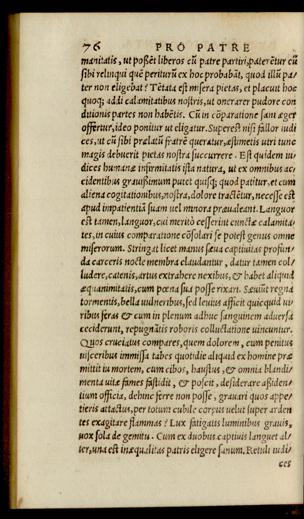 76 PRO PATRE
manitatis, ut possēt liberos cū patre partiri, paterētur cū
sibi relinqui quē periturū ex hoc probabāt, quod illū pa/
ter non eligebat? Tētata est misera pietas, et placuit hoc
quoq; addi calamitatibus nostris, ut onerarer pudore con
ditionis partes non habētis. Cū in cōparatione sani æger
offertur, ideo ponitur ut eligatur. Superest nisi fallor iudi
ces, ut cū sibi prælatū fratrē queratur, æstimetis utri tunc
magis debuerit pietas nostra succurrere. Est quidem iu/
dices humanæ infirmitatis ista natura, ut ex omnibus ac/
cidentibus grauissimum putet quisq; quod patitur, et cum
aliena cogitationibus, nostra, dolore tractētur, necesse est
apud impatientiā suam uel minora præualeant. Languor
est tamen, languor, cui meritò cesserint cunctæ calamita/
tes, in cuius comparatione cōsolari se potest genus omne
miserorum. Stringat licet manus sæua captiuitas, profun/
da carceris nocte membra claudantur, datur tamen col/
ludere, catenis, artus extrahere nexibus, & habet aliquid
æquanimitatis, cum pœna sua posse rixari. Sæuiāt regna
tormentis, bella uulneribus, sed leuius afficit quicquid ui/
ribus feras & cum in plenum adhuc sanguinem aduersa
ceciderunt, repugnātis roboris colluctatione uincuntur.
Quos cruciatus compares, quem dolorem, cum penitus
uisceribus immissa tabes quotidie aliquid ex homine præ
mittit in mortem, cum cibos, haustus, & omnia blandi/
menta uitæ fames fastidit, & poscit, desiderare assiden/
tium officia, deinc ferre non posse, grauari quos appe/
tieris attactus, per totum cubile corpus uelut super arden
tes exagitare flammas? Lux fatigatis luminibus grauis,
uox sola de gemitu. Cum ex duobus captiuis languet al/
ter, una est inæqualitas patris eligere sanum. Retuli iudi/
ces